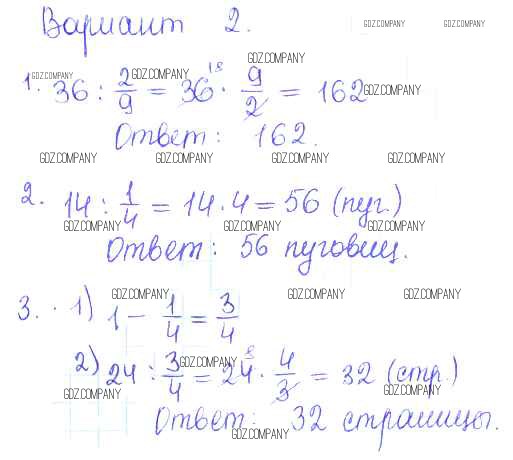 Вариант 2.
GDZ.COMPANY GDZ.COMPANY
GDZ.COMPANY
1. 36 : 2/9 = 36¹⁸ · 9/2 = 162
GDZ.COMPANY GDZ.COMPANY GDZ.COMPANY
Ответ: 162.
GDZ.COMPANY GDZ.COMPANY GDZ.COMPANY GDZ.COMPANY
2. 14 : 1/4 = 14 · 4 = 56 (пуг.)
GDZ.COMPANY GDZ.COMPANY GDZ.COMPANY
Ответ: 56 пуговиц.
GDZ.COMPANY GDZ.COMPANY GDZ.COMPANY
3. · 1) 1 - 1/4 = 3/4
2) 24 : 3/4 = 24⁸ · 4/3 = 32 (стр.)
GDZ.COMPANY GDZ.COMPANY GDZ.COMPANY
Ответ: 32 страницы.
GDZ.COMPANY